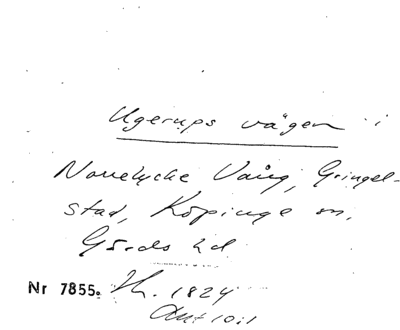 Ugerups vägen i
Norrelycke Vång, Gringel-
stad, Köpinge sn,
Gärds hd
Nr 7855. Th. 1824
Akt 10:1